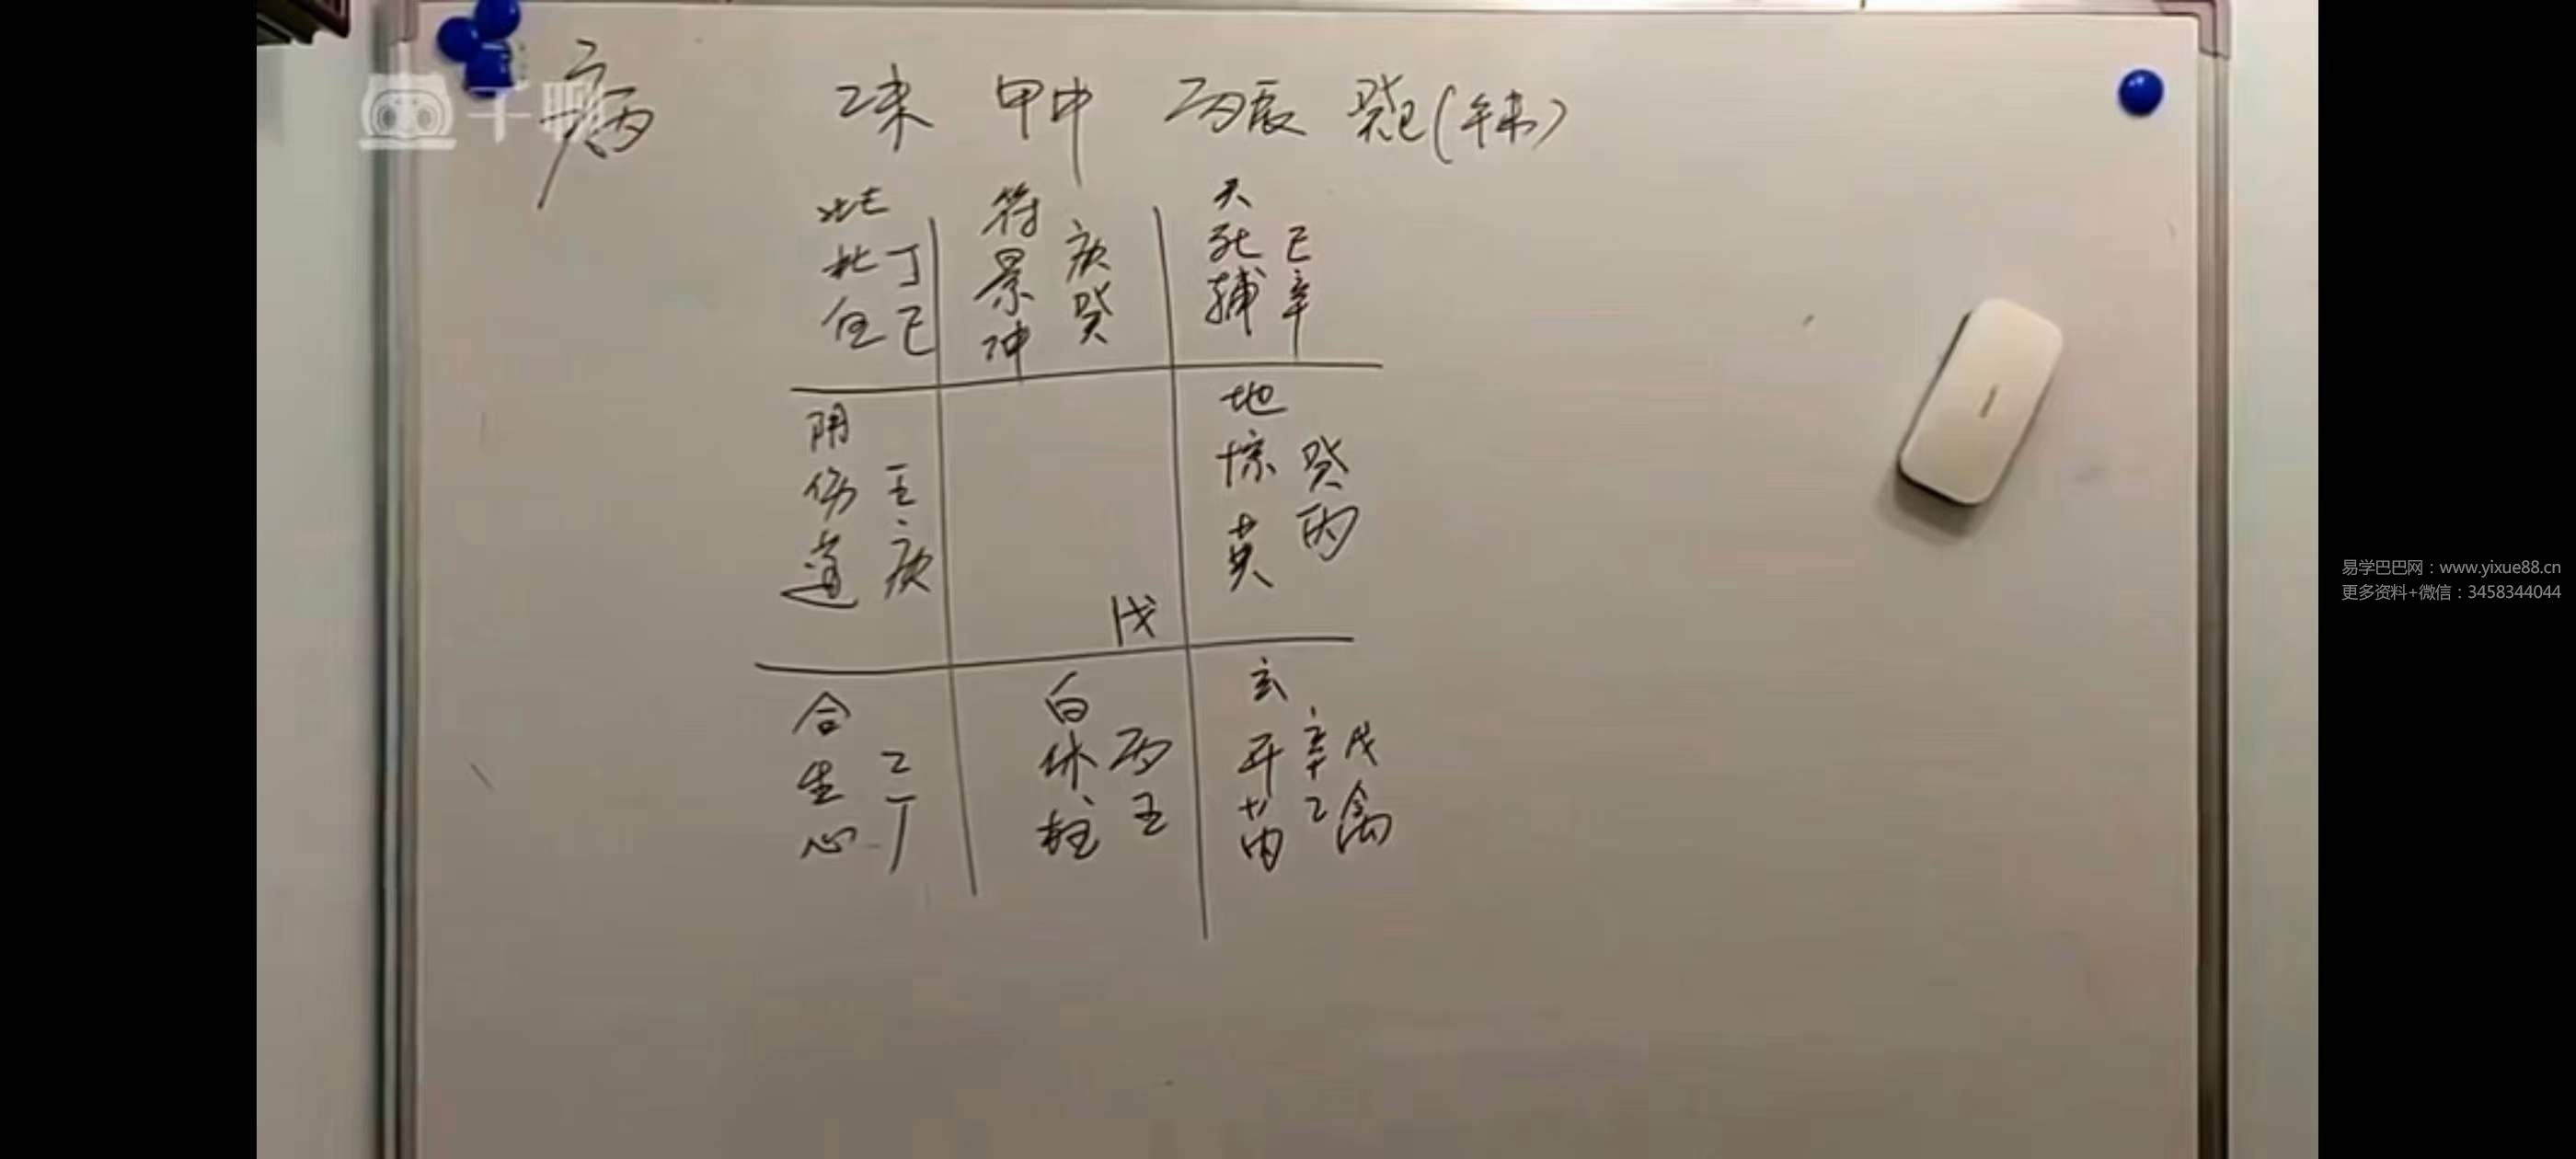 病 乙未 甲申 丙辰 癸巳(午未)
千聊
蛇
杜 丁
任 己
符
景 庚
冲 癸
天
死 己
辅 辛
阴
伤 壬
蓬 庚
戊
地
惊 癸
英 丙
合
生 乙
心 丁
白
休 丙
柱 壬
玄
开 辛 戊
芮 乙 禽
易学巴巴网：www.yixue88.cn
更多资料+微信：3458344044